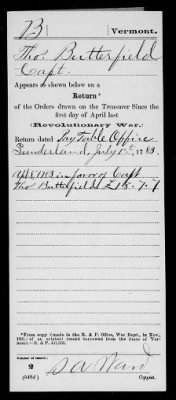 B | Vermont.
Tho. Butterfield
Capt.
Appears as shown below on a
Return*
of the Orders drawn on the Treasurer Since the
first day of April last
(Revolutionary War.)
Return dated Pay Table Office
Sunderland, July 1st, 1783.
Apl 8 1783 in favor of Capt
Tho. Butterfield £18.7.7
*From copy (made in the R. & P. Office, War Dept., in Nov.,
of an original record borrowed from the State of Vermont
R. & P.
Number of record:
2
(545d) Copyist.